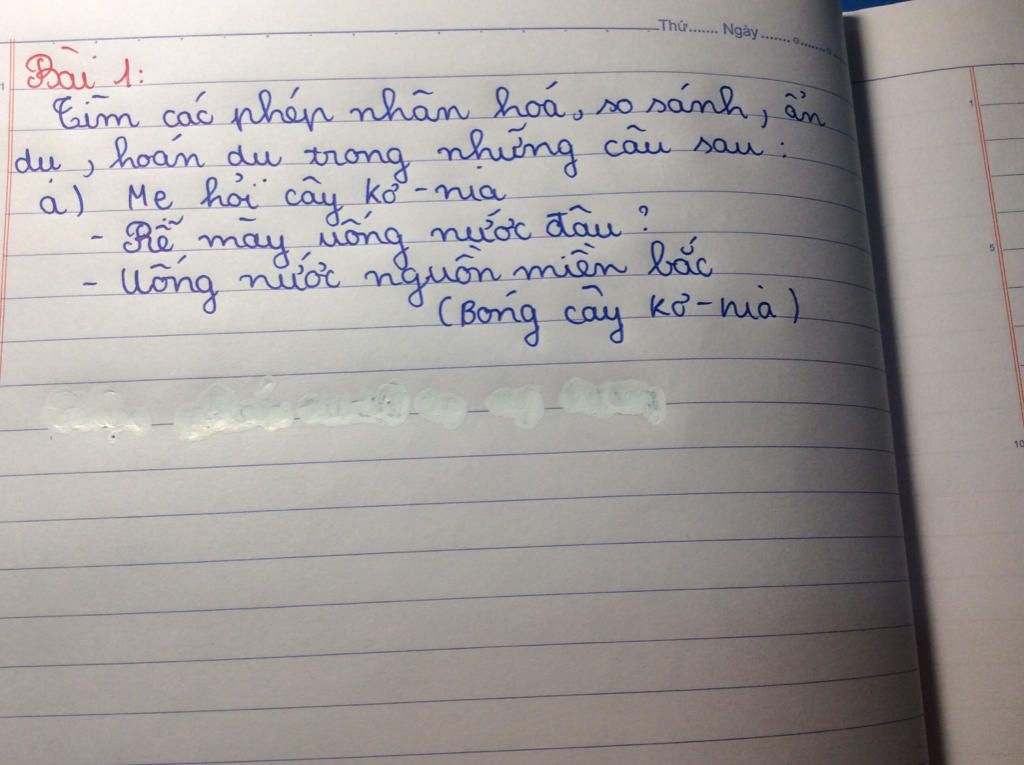 Thứ....... Ngày.......
Bài 1:
Tìm các phép nhân hoá, so sánh, ẩn
dụ, hoán dụ trong những câu sau:
a) Mẹ hỏi cây kơ-nia
- Rễ mày uống nước đâu?
- Uống nước nguồn miền bắc
(Bóng cây kơ-nia)
1
1
5
10